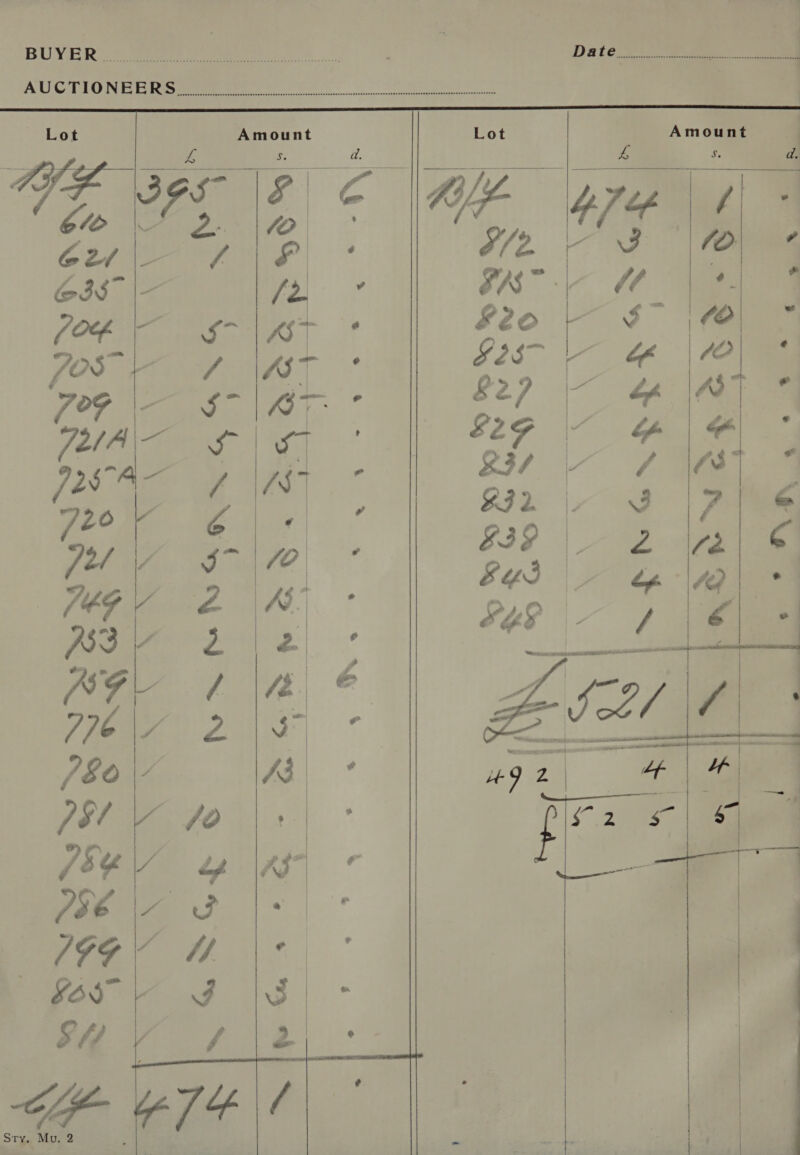 BUYER Date
AUCTIONEERS
Lot Amount
£ s. d.
B/F 395 8 6
610 - 2 10 "
621 - 1 8 "
635 - 12 "
704 - 5 15 "
705 - 1 15 "
709 - 5 15 "
721A - 5 5 "
725A - 1 15 "
720 - 6 " "
721 - 5 10 "
749 - 2 15 "
753 - 2 2 "
759 - 1 12 6
776 - 2 5 "
780 - 13 "
781 - 10 " "
784 - 4 15 "
786 - 3 " "
799 - 11 " "
805 - 3 3 "
811 - 1 2 "
C/F 474 1 "
Sty. Mu. 2
Lot Amount
£ s. d.
B/F 474 1 "
812 - 3 10 "
815 - 11 " "
820 - 5 10 "
825 - 4 10 "
827 - 4 15 "
829 - 4 4 "
831 - 1 15 "
832 - 3 7 6
839 - 2 12 6
843 - 4 10 "
848 - 1 6 "
£521 1 "
492 4 4
£52 5 5